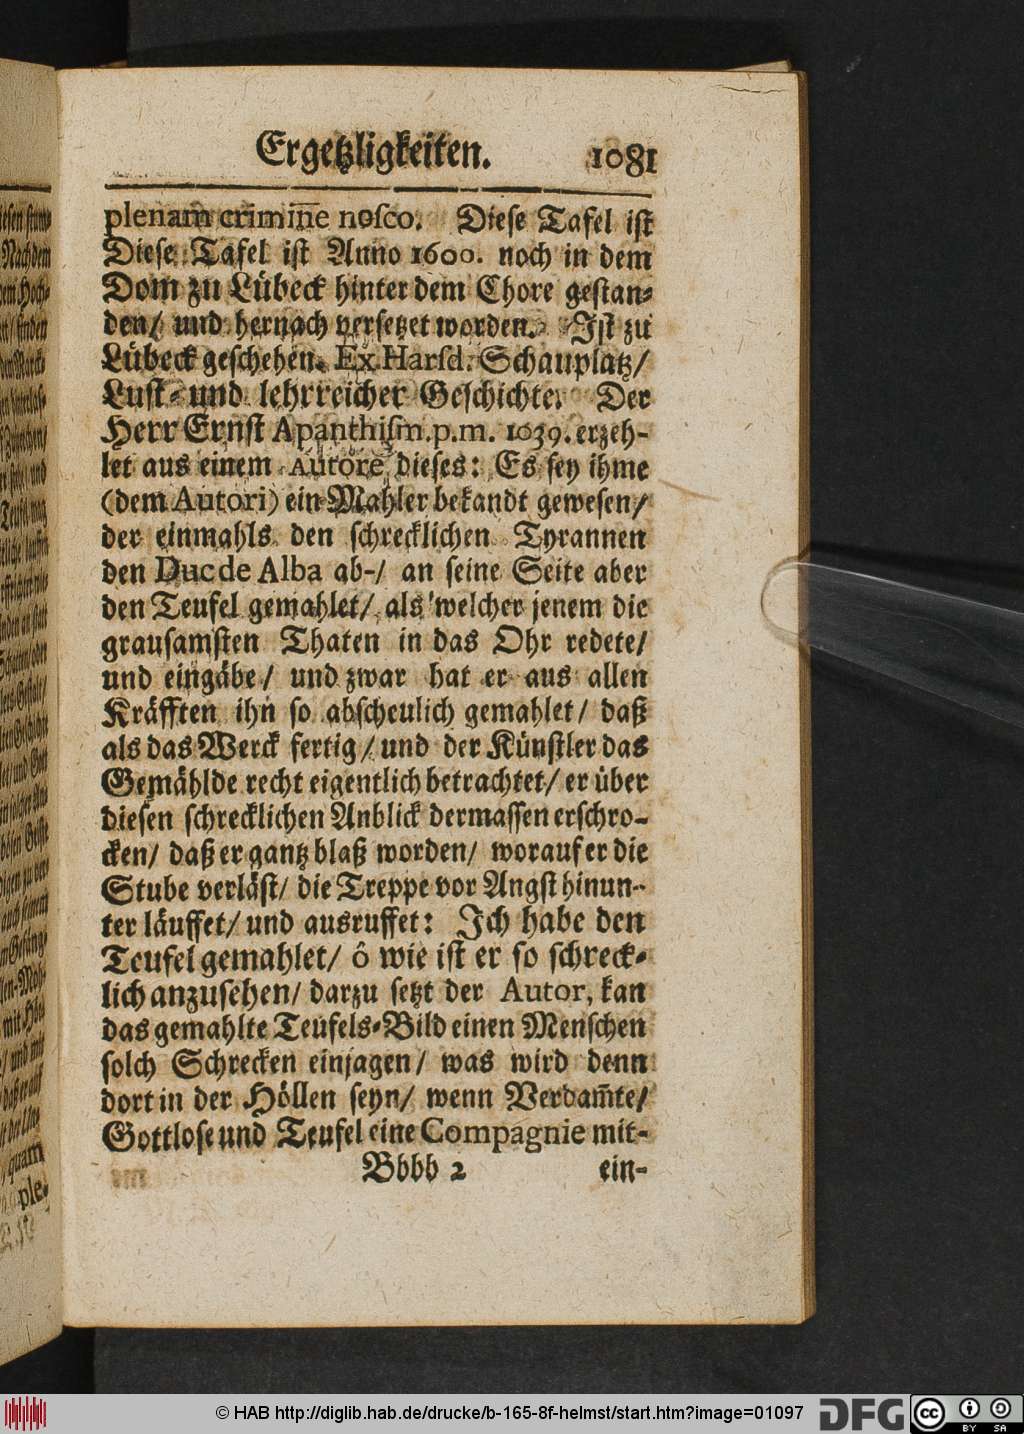 Ergetzligkeiten. 1081
plenam crimin̄e nosco. Diese Tafel ist
Diese Tafel ist Anno 1600. noch in dem
Dom zu Lübeck hinter dem Chore gestan-
den/ und hernach versetzet worden. Ist zu
Lübeck geschehen. Ex Harsd. Schauplatz/
Lust- und lehrreicher Geschichte. Der
Herr Ernst Apanthism. p. m. 1639. erzeh-
let aus einem Autore dieses: Es sey ihme
(dem Autori) ein Mahler bekandt gewesen/
der einmahls den schrecklichen Tyrannen
den Duc de Alba ab-/ an seine Seite aber
den Teufel gemahlet/ als welcher jenem die
grausamsten Thaten in das Ohr redete/
und eingäbe/ und zwar hat er aus allen
Kräfften ihn so abscheulich gemahlet/ daß
als das Werck fertig/ und der Künstler das
Gemählde recht eigentlich betrachtet/ er über
diesen schrecklichen Anblick dermassen erschro-
cken/ daß er gantz blaß worden/ worauf er die
Stube verläst/ die Treppe vor Angst hinun-
ter läuffet/ und ausruffet: Ich habe den
Teufel gemahlet/ ô wie ist er so schreck-
lich anzusehen/ darzu setzt der Autor, kan
das gemahlte Teufels-Bild einen Menschen
solch Schrecken einjagen/ was wird denn
dort in der Höllen seyn/ wenn Verdam̄te/
Gottlose und Teufel eine Compagnie mit-
Bbbb 2 ein-
quam
ple-
© HAB http://diglib.hab.de/drucke/b-165-8f-helmst/start.htm?image=01097
DFG
cc BY SA